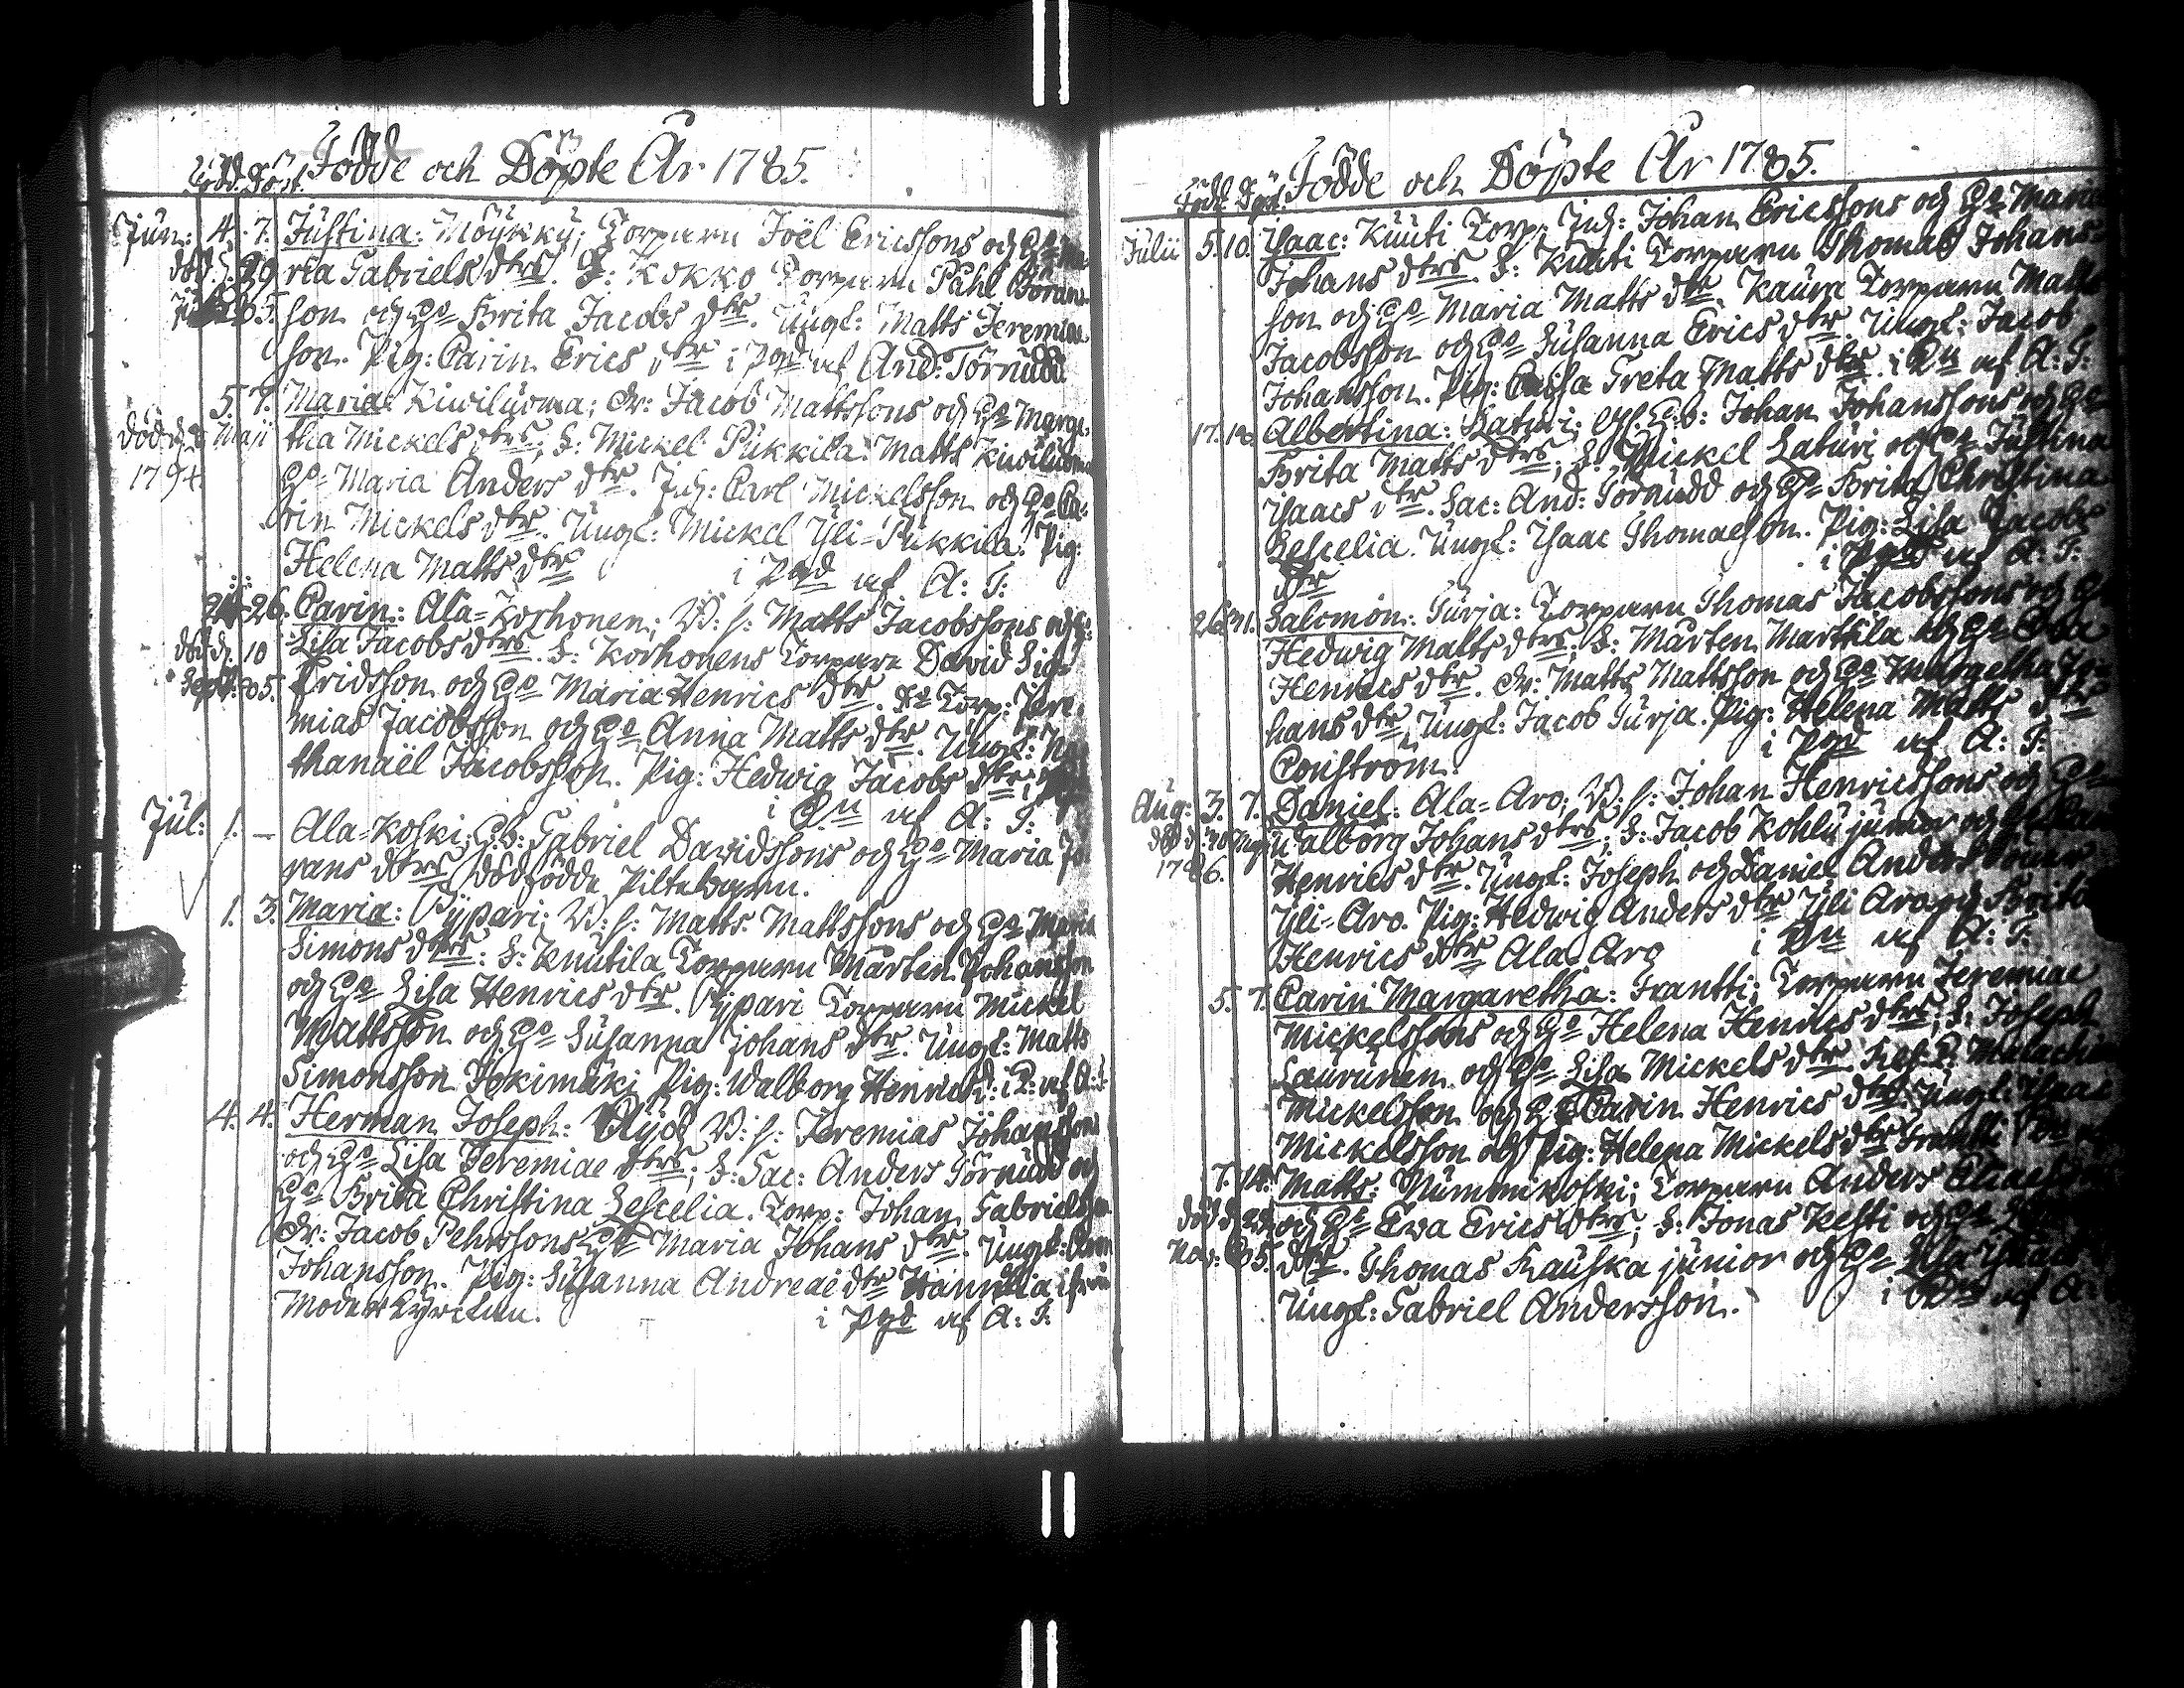 Född. Döpt. Födde och Döpte År 1785.
Jun: 4. 7. Justina: Möykky; Torparn Joël Ericssons och H:o Ma-
död d. 29 ria Gabriels dtrs. F: Kokko Torparn Påhl Göran
85. son och H:o Brita Jacobs dtr. Ungl: Matts Jeremiæ
son. Pig: Carin Erics dtr i Pgd af And: Törnudd
5. 7. Maria: Kiwiluoma; Dr: Jacob Mattssons och H:o Marga-
död d. Maji tha Mickels dtrs; F: Mickel Pukkila. Matts Kiwiluoma
1794. H:o Maria Anders dtr. Inh: Carl Mickelsson och H:o Ca-
rin Mickels dtr. Ungl: Mickel Yli-Pukkila. Pig:
Helena Matts dtr i Pgd af A: T:
26. Carin: Ala-Korhonen; B: s: Matts Jacobssons och H:o
död d. 10 Lisa Jacobs dtrs. F: Korhonens Torpare David Sig-
Sept: 85. fridsson och H:o Maria Henrics dtr. Torp: Jere-
mias Jacobsson och H:o Anna Matts dtr. Ungl: Na-
thanaël Jacobsson. Pig: Hedwig Jacobs dtr
i af A: T:
Jul: 1. — Ala-Koski; Gabriel Davidssons och H:o Maria Jo-
vans dtrs dödfödde Piltebarn.
1. 3. Maria: Pypari; B: s: Matts Mattssons och H:o Maria
Simons dtrs: F: Knutila Torparn Mårten Johansson
och H:o Lisa Henrics dtr. Pypari Torparn Mickel
Mattsson och H:o Susanna Johans dtr. Ungl: Matts
Simonsson Jokimäki Pig: Walborg Henrics d: i P: af A: T:
4. 4. Herman Joseph: B: s: Jeremias Johanssons
och H:o Lisa Jeremiae dtrs; F: Sac: Anders Törnudd och
H:o Brita Christina Lescelia. Torp: Johan Gabrielsson
Dr: Jacob Pehrssons H:o Maria Johans dtr. Ungl:
Johansson. Pig: Susanna Andreae dtr Hannula ifrån
Moderkyrckan. i Pgd af A: T:
Född. Döpt. Födde och Döpte År 1785.
Julii 5. 10. Isaac: Kuuti Torp. Inh: Johan Ericssons och H:o Maria
Johans dtrs. F: Kuuti Torparn Thomas Johans-
son och H:o Maria Matts dtr. Torparn Matts
Jacobsson och H:o Susanna Erics dtr. Ungl: Jacob
Johansson. Pig: Caisa Greta Matts dtr. i af A: T:
17. 18. Albertina: Laturi; Johan Johanssons och H:o
Brita Matts dtrs; F: Mickel Laturi och H:o Justina
Isaacs dtr. Sac: And: Törnudd och H:o Brita Christina
Lescelia. Ungl: Isaac Thomasson. Pig: Lisa Jacobs
dtr i Pgd af A: T:
26. 31. Salomon: Turja: Torparn Thomas Jacobssons och H:o
Hedwig Matts dtrs; F: Mårten Marttila och H:o
Henrics dtr. Dr: Matts Mattsson och H:o Margetha Jo-
hans dtr. Ungl: Jacob Turja. Pig: Helena Matts dtr
Conström. i Pgd af A: T:
Aug: 3. 7. Daniel: Ala-Aro; B: s: Johan Henricssons och H:o
död d. Walborg Johans dtrs; F: Jacob Kohlu junior och H:o
1786. Henrics dtr. Ungl: Joseph och Daniel Anders
Yli-Aro. Pig: Hedwig Anders dtr Yli Aro och Brita
Henrics dtr Ala-Aro i af A: T:
5. 7. Carin Margaretha: Frantti; Torparn Jeremiae
Mickelssons och H:o Helena Henrics dtrs; F: Joseph
Laurunen och H:o Lisa Mickels dtr.
Mickelsson och H:o Carin Henrics dtr. Ungl: Isaac
Mickelsson och Pig: Helena Mickels dtr Frantti
7. 14. Matts: Nummikoski; Torparn Anders
död d. och H:o Ewa Erics dtrs; F: Jonas Kesti och H:o
Nov: 85. dtr. Thomas Rauska junior och H:o Lisa
Ungl: Gabriel Andersson. i af A: